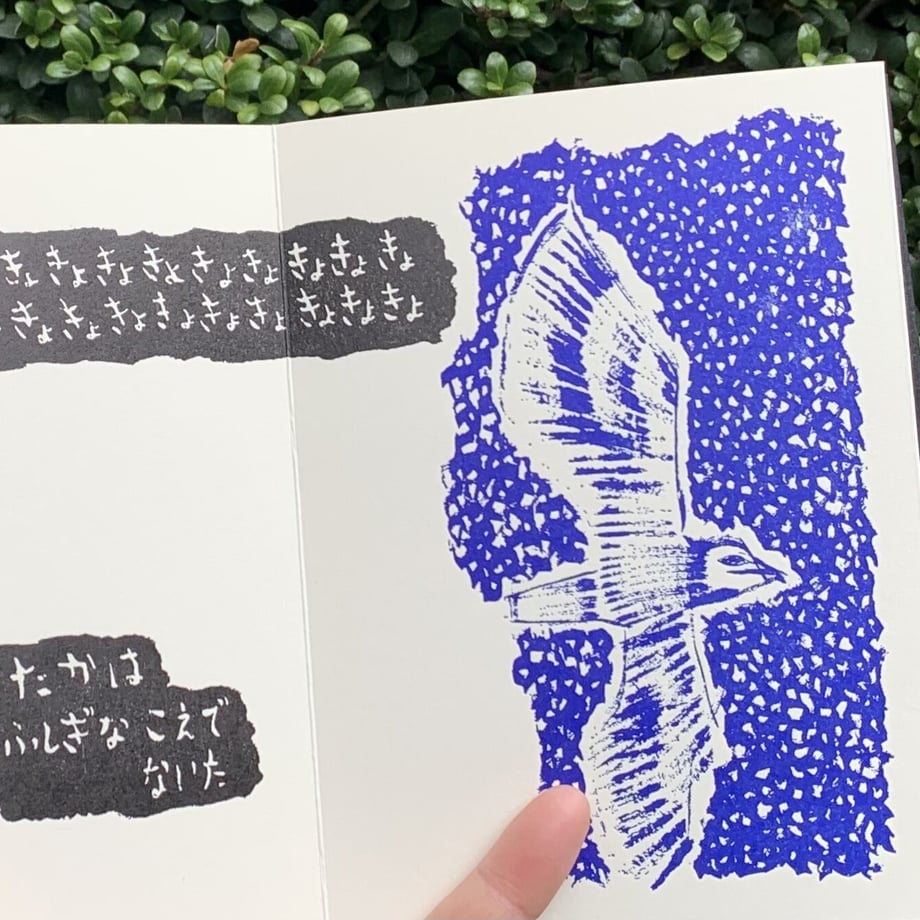 きょきょきょきょきょきょきょきょきょ
きょきょきょきょきょきょきょきょきょ
たかは
ふしぎな こえで
ないた